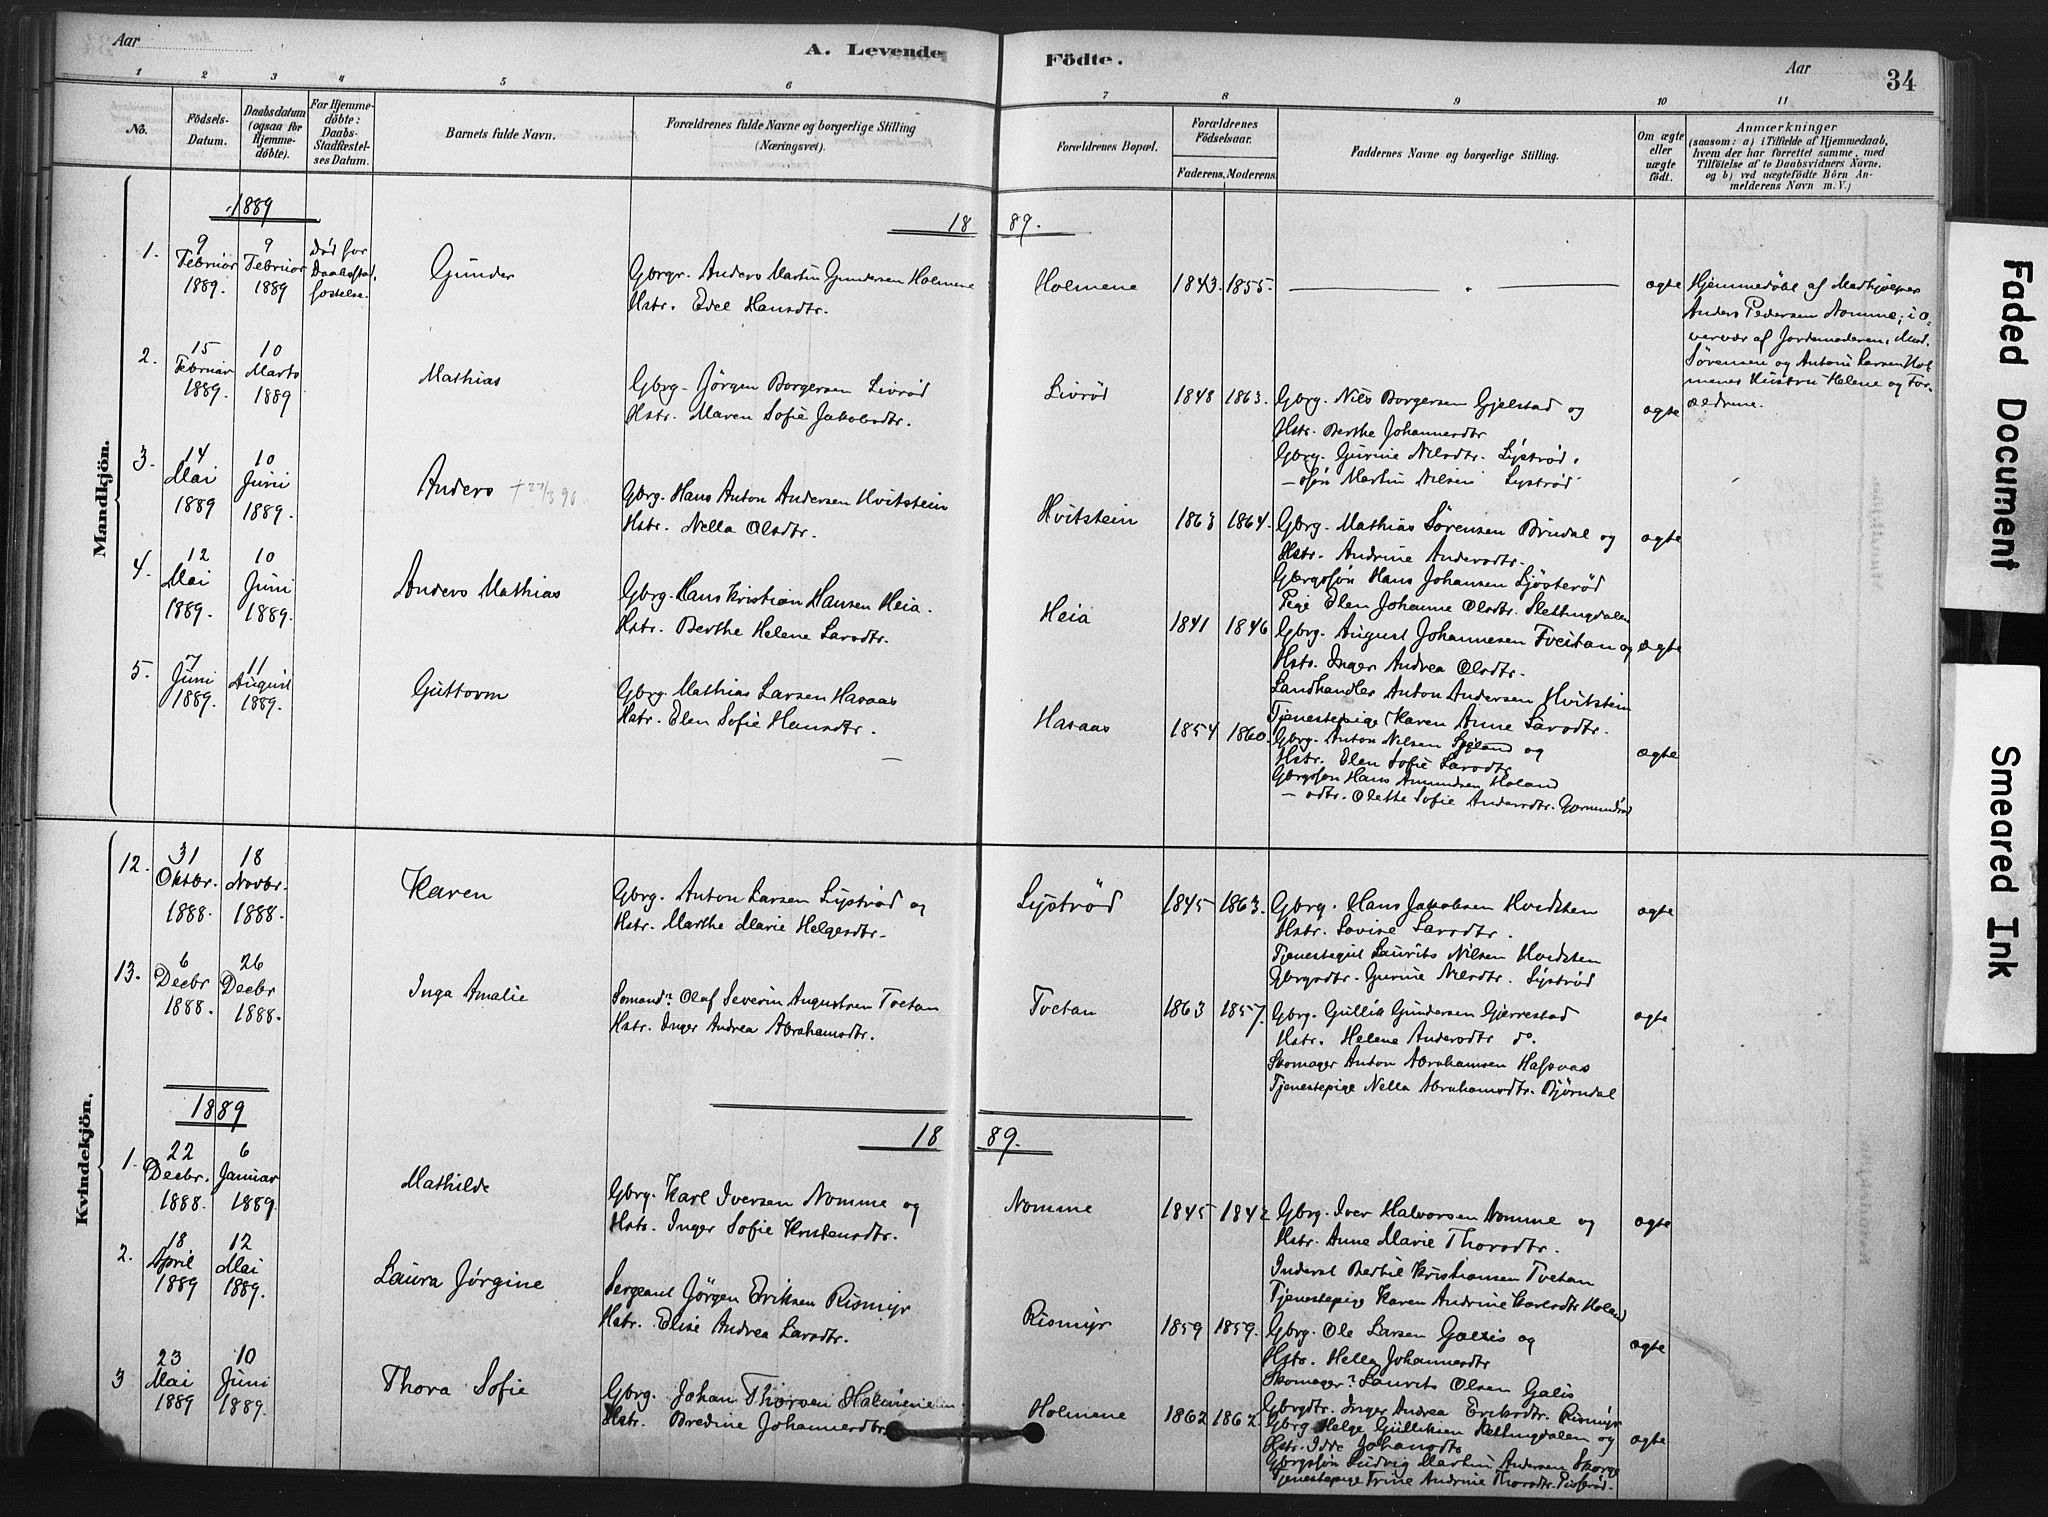 Aar
A. Levende
Födte.
Aar
34
1 2 3 4 5 6 7 8 9 10 11
No.
Födsels-
Datum.
Daabsdatum
(ogsaa for
Hjemme-
døbte).
For Hjemme-
døbte:
Daabs-
Stadfæstel-
ses Datum.
Barnets fulde Navn.
Forældrenes fulde Navne og borgerlige Stilling
(Næringsvei).
Forældrenes Bopæl.
Forældrenes
Födselsaar.
Faderens.
Moderens.
Faddernes Navne og borgerlige Stilling.
Om ægte
eller
uægte
født.
Anmærkninger
(saasom: a) i Tilfælde af Hjemmedaab,
hvem der har forrettet samme, med
Tilføielse af to Daabsvidners Navne.
og b) ved uægtefødte Börn An-
melderens Navn m. V.)
Mandkjön.
1889
18 89.
1.
9
Februar
1889.
9
Februar
1889
død før
Daabsstad-
fæstelse.
Gunder
Gbrgr. Anders Martin Gundersen Holmene
Hstr. Edel Hansdtr.
Holmene
1843. 1855.
ægte
Hjemmedøbt af Medhjælper
Anders Pedersen Nomme, i O-
vervær af Jordemoderen, Mad.
Sørensen og Anton Larsen Hol-
menes Hustru Helene og For-
ældrene.
2.
15
Februar
1889.
10
Marts
1889
Mathias
Gbrg. Jørgen Borgersen Livrød
Hstr. Maren Sofie Jakobsdtr.
Livrød
1848 1863.
Gbrg. Nils Borgersen Gjelstad og
Hstr. Berthe Johannesdtr
Gbrg. Gurine Nilsdtr. Lystrød.
— søn Martin Nilsen Lystrød
ægte
3.
14
Mai
1889
10
Juni
1889.
Anders + 27/3 90.
Gbrg. Hans Anton Andersen Hvitstein
Hstr. Nella Olsdtr.
Hvitstein
1863 1864.
Gbrg. Mathias Sørensen Brudal og
Hstr. Andrine Andersdtr.
Gbrgssøn Hans Johansen Sjøsterød
Pige Elen Johanne Olsdtr. Slettingdalen
ægte
4.
12
Mai
1889.
10
Juni
1889.
Anders Mathias
Gbrg. Hans Kristian Hansen Heia.
Hstr. Berthe Helene Larsdtr.
Heia
1841 1846
Gbrg. August Johannesen Tveitan og
Hstr. Inger Andrea Olsdtr.
Landhandler Anton Andersen Hvitstein
Tjenestepige Karen Anne Larsdtr.
ægte
5.
7
Juni
1889.
11
August
1889.
Guttorm
Gbrg. Mathias Larsen Hasaas
Hstr. Elen Sofie Hansdtr.
Hasaas
1854 1860.
Gbrg. Anton Nilsen og
Hstr. Elen Sofie Larsdtr
Gbrgssøn Hans Amundsen Holand
— sdtr. Olette Sofie Andersdtr.
ægte
Kvindekjön.
12.
31
Oktbr.
1888.
18
Novbr.
1888.
Karen
Gbrg. Anton Larsen Lystrød og
Hstr. Marthe Marie Helgesdtr.
Lystrød
1845 1863.
Gbrg. Hans Jakobsen Hvidsten
Hstr. Lovise Larsdtr.
Tjenestegut Laurits Nilsen Hvidsten
Gbrgsdtr. Gurine Nilsdtr. Lystrød
ægte
13.
6
Decbr
1888.
26
Decbr
1888.
Inga Amalie
Sømand? Olaf Severin Augustsen Tvetan
Hstr. Inger Andrea Abrahamsdtr.
Tvetan
1863 1857.
Gbrg. Gullik Gundersen Gjerrestad
Hstr. Helene Andersdtr do.
Skomager Anton Abrahamsen Hafsaas
Tjenestepige Nella Abrahamsdtr. Bjørndal
ægte
1889
18 89.
1.
22
Decbr.
1888.
6
Januar
1889.
Mathilde
Gbrg. Karl Iversen Nomme og
Hstr. Inger Sofie Kristensdtr.
Nomme
1845 1842
Gbrg. Iver Halvorsen Nomme og
Hstr. Anne Marie Thorsdtr.
Inderst Bertil Kristiansen Tvetan
Tjenestepige Karen Andrine Karlsdtr Holand
ægte
2.
18
April
1889
12
Mai
1889.
Laura Jørgine
Sergeant Jørgen Eriksen Rismyr
Hstr. Elise Andrea Larsdtr.
Rismyr
1859 1859.
Gbrg. Ole Larsen Galis og
Hstr. Helle Johannesdtr
Skomager? Laurits Olsen Galis
Gbrgdtr. Inger Andrea Eriksdtr. Rismyr
ægte
3
23
Mai
1889
10
Juni
1889.
Thora Sofie
Gbrg. Johan Thorsen Holmene
Hstr. Bredine Johannesdtr.
Holmene
1862 1862.
Gbrg Helge Gulliksen Slettingdalen og
Hstr. Idde Johansdtr
Gbrgssøn Ludvig Martin Andersen Skorge
Tjenestepige Trine Andrine Thorsdtr.
ægte
Faded Document
Smeared Ink